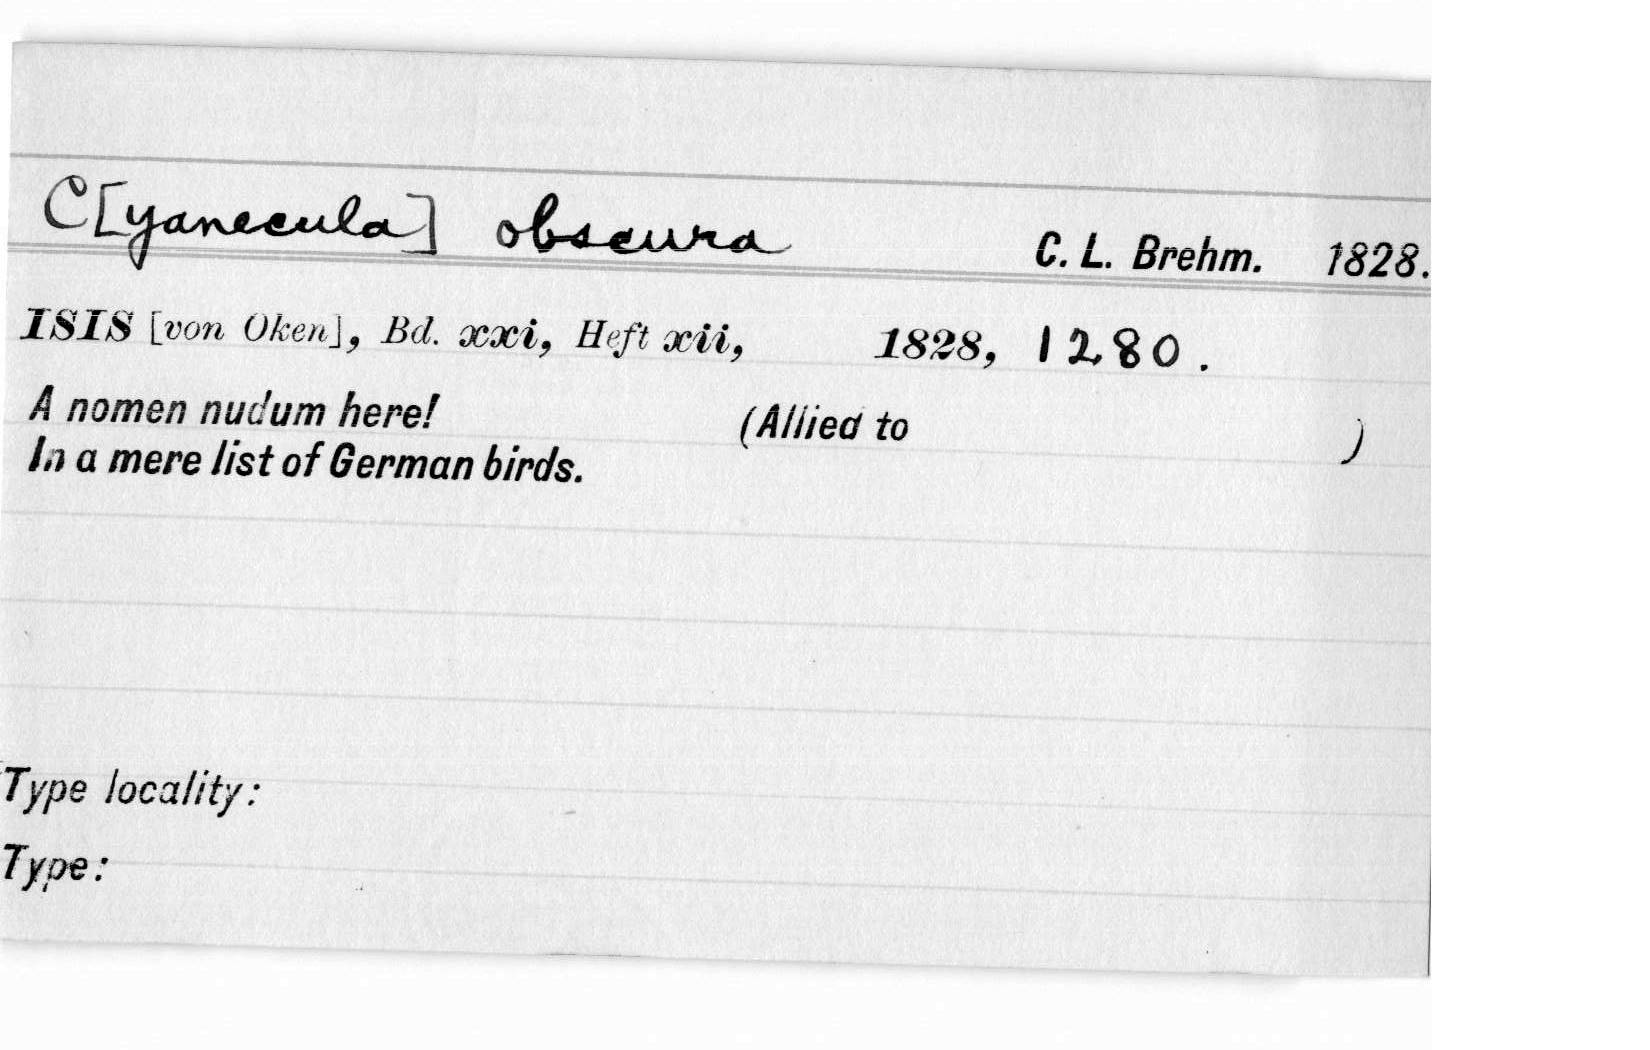 C[yanecula] obscura C. L. Brehm. 1828.
ISIS [von Oken], Bd. xxi, Heft xii, 1828, 1280.
A nomen nudum here! (Allied to )
In a mere list of German birds.
Type locality:
Type: